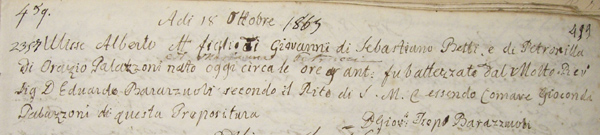 489. Adi 18 Ottobre 1865 489
2357 Ulisse Alberto Att figlio di Giovanni di Sebastiano Betti, e di Petronilla
di Orazio Palazzoni nato oggi circa le ore 9 ant: fu battezzato dal Molto Rev
Sig D Eduardo Barazzuoli secondo il Rito di S. M. C essendo Comare Gioconda
Palazzoni di questa Prepositura
P Giov: Prop Barazzuoli